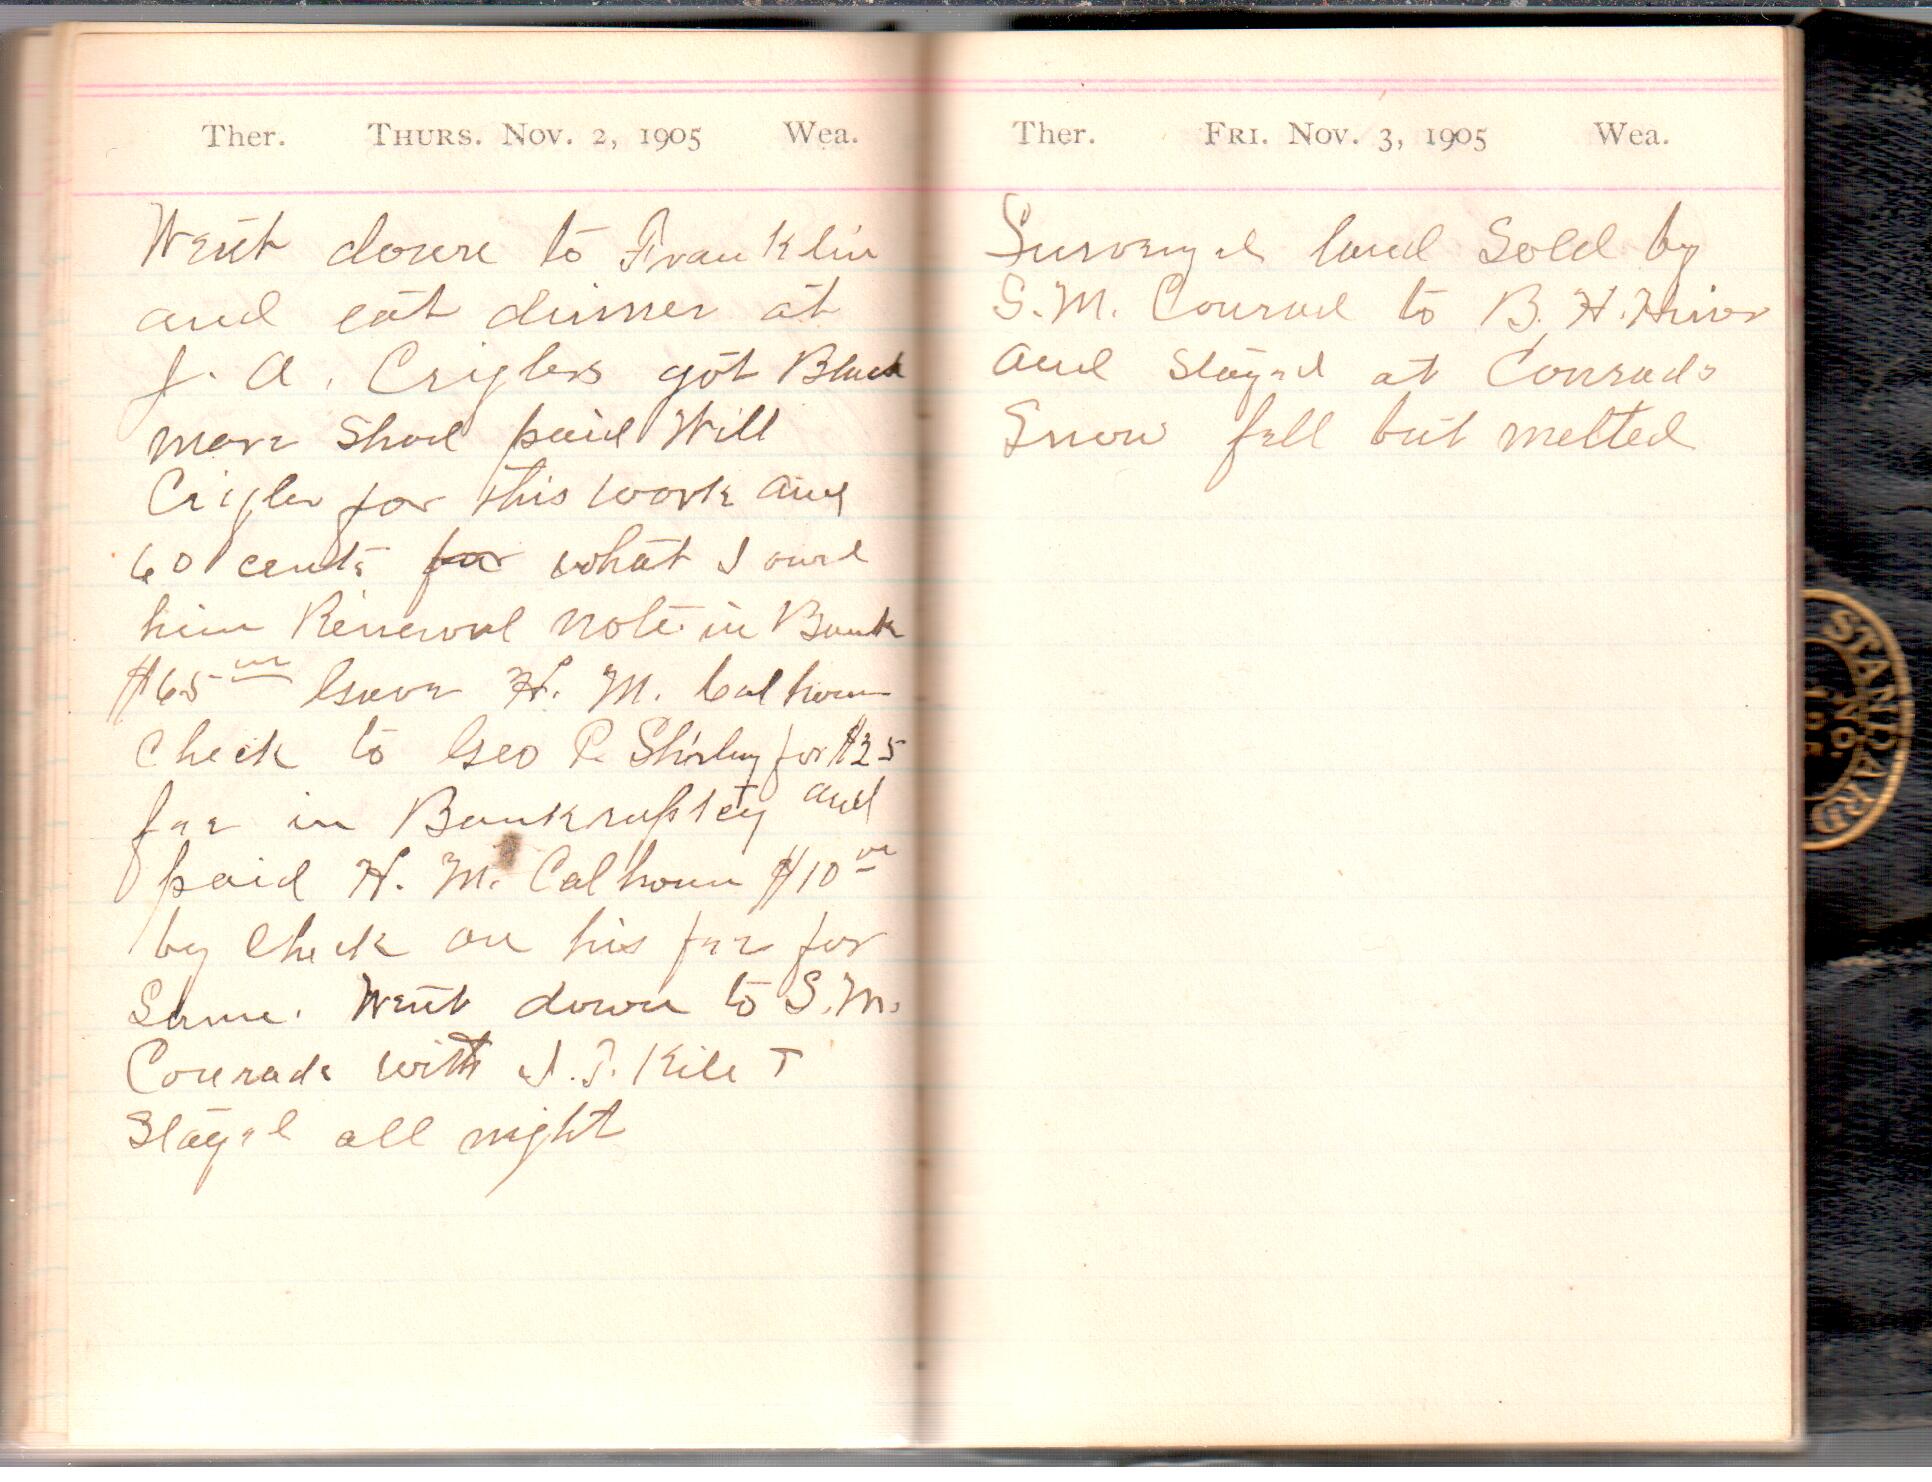 Ther. Thurs. Nov. 2, 1905 Wea.
Went down to Franklin
and eat dinner at
J. A. Criglers got Black
mare Shod paid Will
Crigler for this work and
60 cents for what I owed
him Renewed note in Bank
$65 00 Gave H. M. Calhoun
Check to Geo P. Shirley for $25
fee in Bankruptcy and
paid H. M. Calhoun $10 00
by Check on his fee for
Same. Went down to S. M.
Conrads with I. T. Kile +
Stayed all night
Ther. Fri. Nov. 3, 1905 Wea.
Surveyed land Sold by
S. M. Conrad to B. H. Hiner
and Stayed at Conrads
Snow fell but melted
STANDARD
NO.